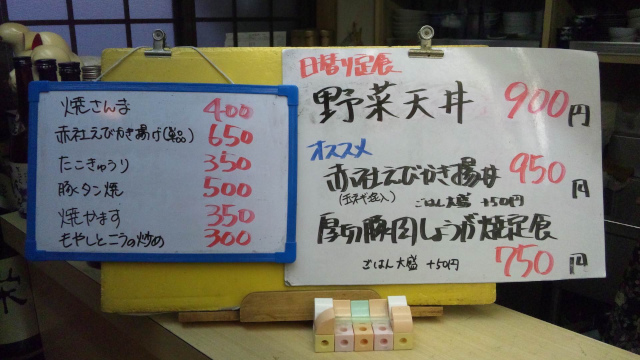 焼さんま 400
赤社えびかき揚げ(単品) 650
たこきゅうり 350
豚タン焼 500
焼やます 350
もやしとニラの炒め 300
日替り定食
野菜天丼 900円
オススメ
赤社えびかき揚丼 950円
(玉ねぎ入)
ごはん大盛 +50円
厚切豚肉しょうが焼定食
750円
ごはん大盛 +50円